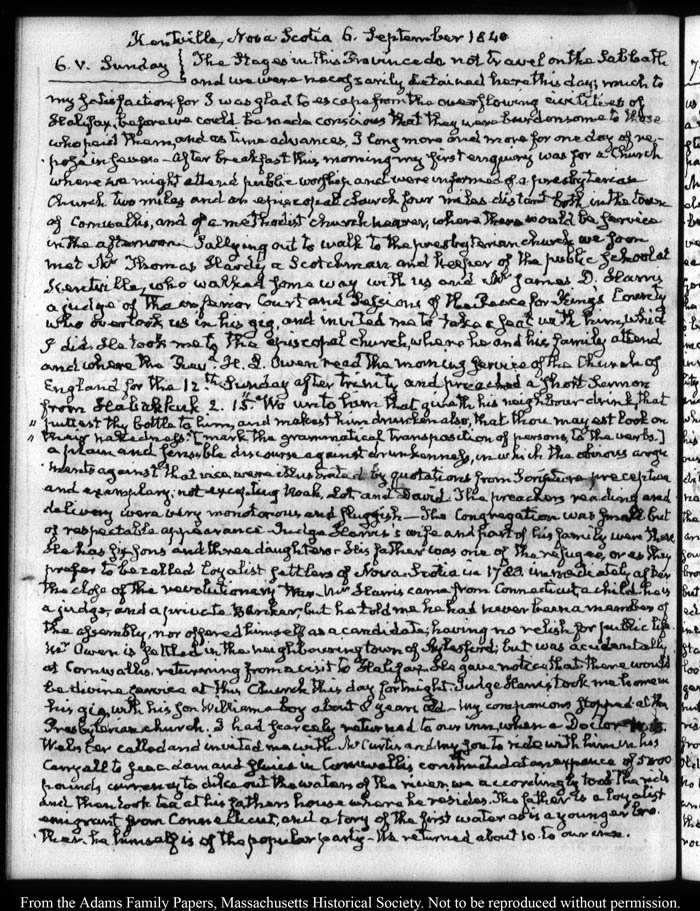 Kentville, Nova Scotia 6. September 1840
6. V. Sunday { The Stages in this Province do not travel on the Sabbath
and we were necessarily detained here this day; much to
my satisfaction, for I was glad to escape from the overflowing civilities of
Halifax, before we could be made conscious that they were burdensome to those
who paid them, and as time advances, I long more and more for one day of re-
pose in seven – After breakfast this morning my first enquiry was for a Church
where we might attend public worship and were informed of a presbyterian
Church two miles and an episcopal church four miles distant both in the town
of Cornwallis, and of a methodist church nearer, where there would be service
in the afternoon. Sallying out to walk to the presbyterian church we soon
met Mr Thomas Hardy a Scotchman and keeper of the public school at
Kentville, who walked some way with us and Mr James D. Harris
a judge of the inferior Court and Sessions of the Peace for Kings County
who overtook us in his gig, and invited me to take a seat with him, which
I did. He took me to the episcopal church, where he and his family attend
and where the Revd H. L. Owen read the morning service of the Church of
England for the 12th Sunday after trinity and preached a short Sermon
from Habakkuk 2. 15. "Wo unto him that giveth his neighbour drink, that
" puttest thy bottle to him, and makest him drunken also, that thou mayest look on
" their nakedness" [mark the grammatical transposition of persons, to the verbs.]
a plain and sensible discourse against drunkenness, in which the obvious argu
ments against that vice, were illustrated by quotations from Scripture preceptive
and exemplary: not excepting Noah, Lot and David. The preachers reading and
delivery were very monotonous and sluggish – The Congregation was small but
of respectable appearance. Judge Harris's wife and part of his family were there
He has six sons and three daughters. His father was one of the refugee, or as they
prefer to be called loyalist settlers of Nova-Scotia in 1783. immediately after
the close of the revolutionary War. Mr Harris came from Connecticut a child he is
a judge, and a private Banker, but he told me he had never been a member of
the assembly, nor offered himself as a candidate; having no relish for public life.
Mr Owen is settled in the neighbouring town of Aylesford; but was accidentally
at Cornwallis, returning from a visit to Halifax. He gave notice that there would
be divine service at this Church this day fortnight. Judge Harris took me home in
his gig, with his son William a boy about 8 years old – my companions stopped at the
Presbyterian church. I had scarcely returned to our inn, when a Doctor
Webster called and invited me with Mr Curtis and my son to ride with him in his
Carryall to see a dam and sluices in Cornwallis constructed at an expence of
pounds currency to dike out the waters of the river. we accordingly took the ride
and then took tea at his fathers house where he resides. The father is a loyalist
emigrant from Connecticut, and a tory of the first water as is a younger bro-
ther. he himself is of the popular party – We returned about 10. to our inn.
From the Adams Family Papers, Massachusetts Historical Society. Not to be reproduced without permission.